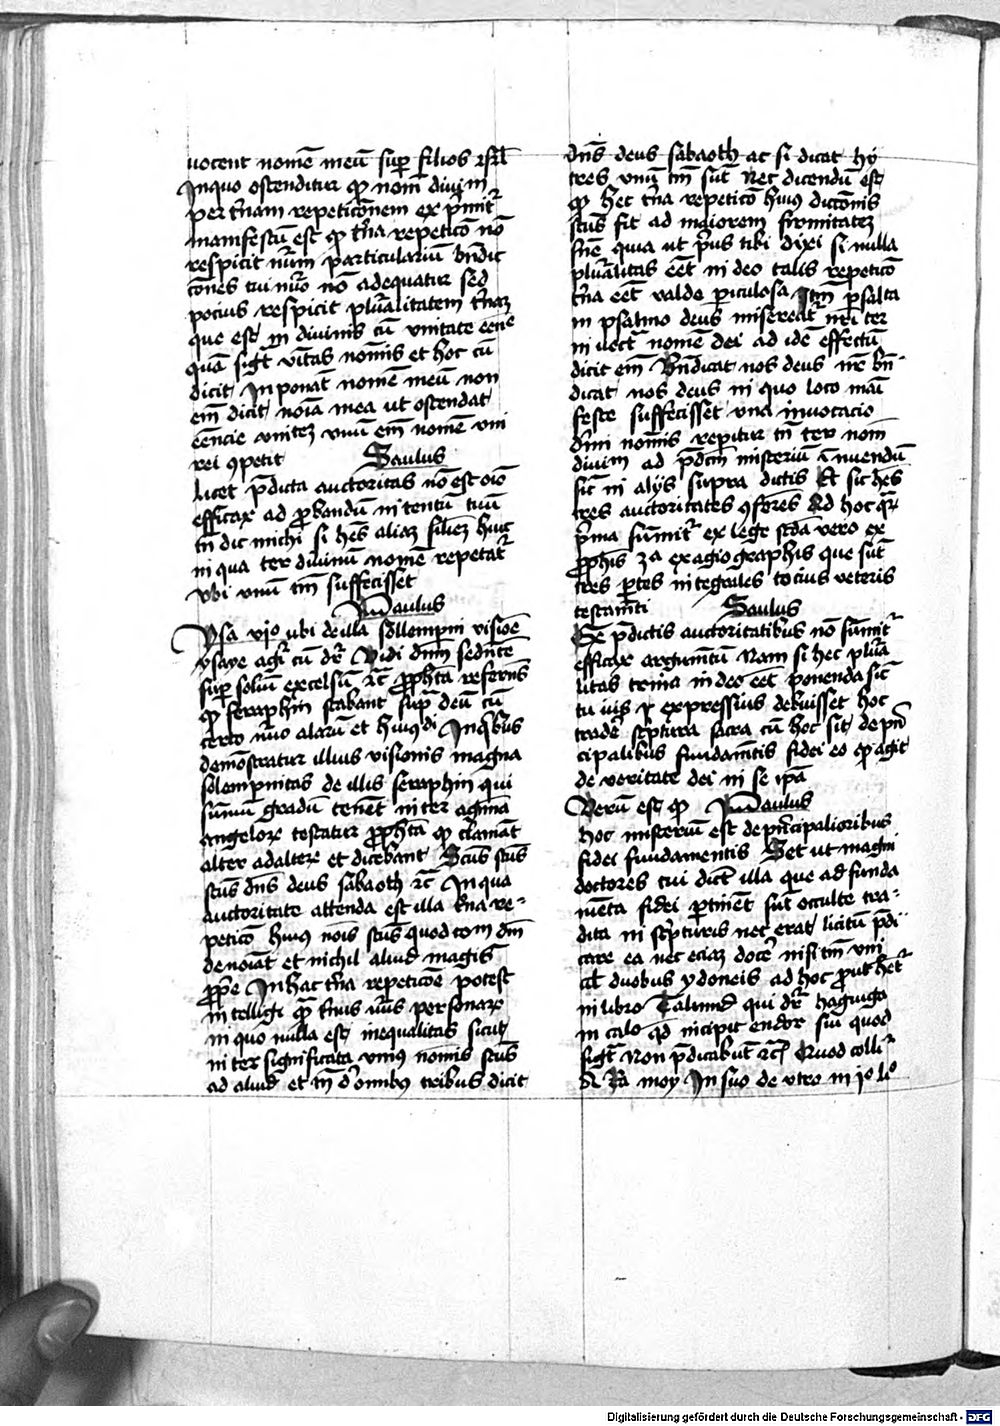 uocent nomē meū suꝑ filios isrl̄
Inquo ostenditur ꝙ nomē diuinū
per trinam repeticōnem exprimitur
manifestū est ꝙ trīa repeticō nō
respicit nūm particularium bn̄dic
cōnes tui nūo nō adequatur sed
pocius respicit plūalitatem trinā
que est in diuinis cū vnitate eēcie
quā sigt̄ vītas nomīs et hoc cū
dicit Inponāt nomē meū non
em̄ dicit noīa mea ut ostendat
eēncie vnitē vnuū em̄ nomē vni
rei ꝯpetit Saulus
Licet p̄dicta auctoritas nō est oīo
efficax ad ꝓbandū intentū tuū
tn̄ dic michi si hēs aliaꝫ filieꝫ huic
in qua ter diuinū nomē repetatr̄
vbi vnū tm̄ suffecisset
Paulus
Ysa vjo ubi de illa sollempni visiōe
ysaye agir̄ cū dr̄ Vidi dn̄m sedēte
suꝑ soliū excelsū ⁊c̄ ꝓphētā referēns
ꝙ seraphin stabant suꝑ deū cū
certo nūo alarū et huiꝰdi Inqͥbus
demōstratur illius visionis magna
solempnitas de illis seraphin qui
sūmū gradū tenēt inter agmīa
angeloꝝ testatur ꝓphēta ꝙ clamāt
alter adalteꝝ et dicebant Scūs scūs
scūs dn̄s deus sabaoth ⁊c̄ In qua
auctoritate attenda est illa trīa re-
peticō huiꝰ noīs scūs quod tom dm̄
denoīat et nichil aliud magis
ꝓpͥe In hac trīa repeticōe potest
intelligi
in quo nulla est inequalitas sicut
inter significata vniꝰ nomīs scūs
ad aliud et tn̄ de omnibꝰ tribus dicit
dn̄s deus sabaoth ac si dicat hij
tres vnū tm̄ sūt Nec dicendū est
ꝙ hec trīa repeticō huiꝰ dictōnis
scūs fit ad maiorem firmitateꝫ
sine quia ut prius tibi dixi si nulla
plūalitas eēt in deo talis repeticō
trīa eēt valde ꝑiculosa Itm̄ psalta
in psalmo deus misereatr̄ nrī ter
inuectr̄ nomē dei ad idē effectū
dicit em̄ Bn̄dicat nos deus nr̄ bn̄-
dicat nos deus in quo loco maī
feste suffecisset vna inuocacio
dīni nomīs repitur tn̄ ter nom̄
diuinū ad p̄dcm̄ misteriū innuendū
sic̄ in alijs supra dictis Et sic hēs
tres auctoritates ꝯfōres Ad hoc
prīma sūmitr̄ ex lege scdā vero ex
ꝓphīs 3a ex agiographis que sūt
tres ꝑtes integrales tociꝰ veteris
testamēti Saulus
Ex p̄dictis auctoritatibus nō sūmitr̄
efficax argumētū Nam si hec plūa
litas trina in deo eēt ponenda sic̄
tu vis expressius debuisset hoc
tradē scriptura sacra cū hoc sit de prīn
cipalibus fundamētis fidei eo ꝙ agit
de veritate dei in se ipā
Verū est ꝙ Paulus
hoc misteriū est de principalioribus
fidei fundamentis Set ut magni
doctores tui dicūt illa que ad funda
mēta fidei ꝑtinēt sūt occulte tra-
dita in scripturis nec erat licitū p̄di
care ea nec eciaꝫ docē nisi tm̄ vni
uel duobus ydoneis ad hoc ꝓut hētr̄
in libro Talmud qui dr̄ haguiga
in calo qd incipit endor siu quod
sigt̄ Non p̄dicabūt ⁊c̄ Quod
Ra moy In suo de vtro in